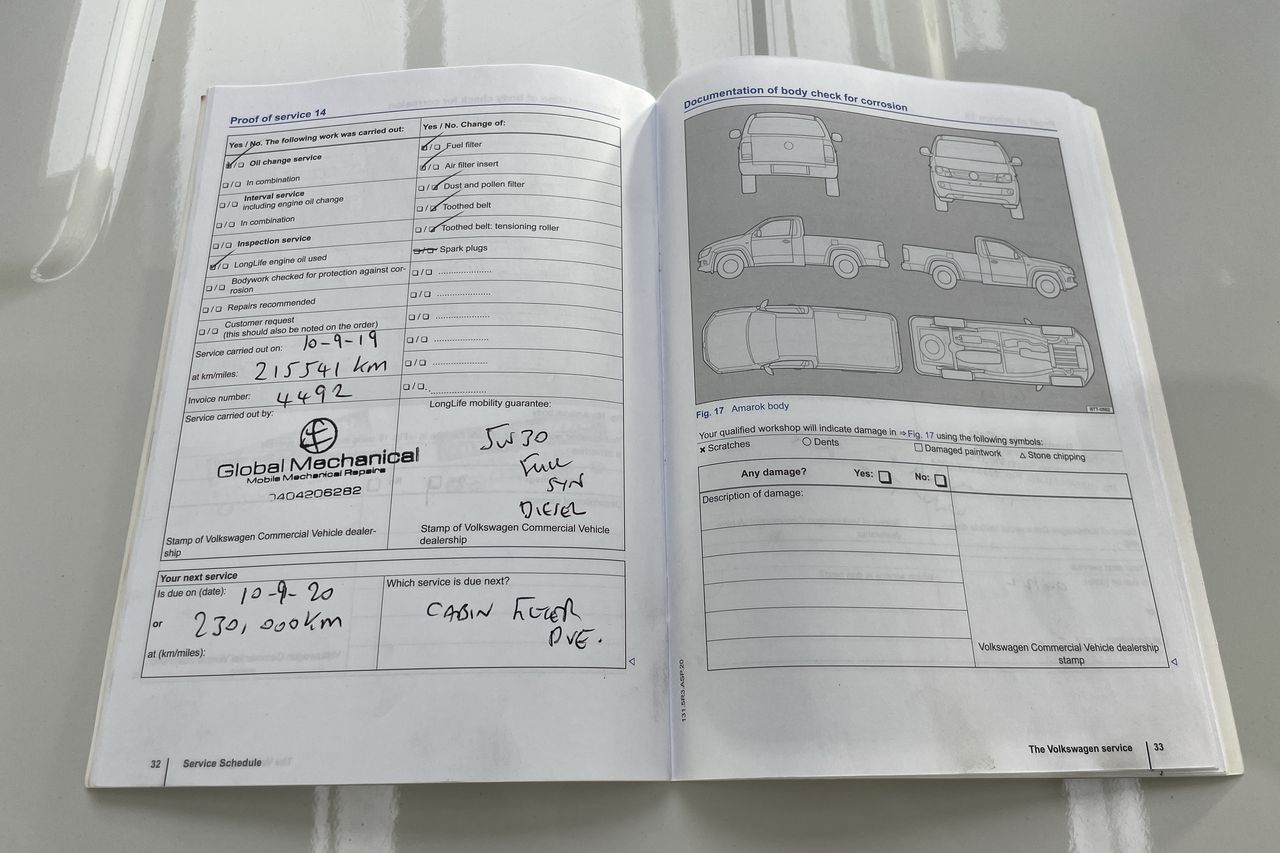 Proof of service 14
Yes / No. The following work was carried out:
☑/☐ Oil change service
☐/☐ In combination
☐/☐ Interval service
including engine oil change
☐/☐ In combination
☐/☐ Inspection service
☑/☐ LongLife engine oil used
☐/☐ Bodywork checked for protection against cor-
rosion
☐/☐ Repairs recommended
☐/☐ Customer request
(this should also be noted on the order)
Service carried out on: 10-9-19
at km/miles: 215541 km
Invoice number: 4492
Service carried out by:
Global Mechanical
Mobile Mechanical Repairs
0404206282
Stamp of Volkswagen Commercial Vehicle dealer-
ship
Yes / No. Change of:
☑/☐ Fuel filter
☑/☐ Air filter insert
☐/☑ Dust and pollen filter
☐/☑ Toothed belt
☐/☑ Toothed belt: tensioning roller
☐/☐ Spark plugs
☐/☐ .....................
☐/☐ .....................
☐/☐ .....................
☐/☐ .....................
☐/☐ .....................
☐/☐ .....................
LongLife mobility guarantee:
5W30
FULL
SYN
DIESEL
Stamp of Volkswagen Commercial Vehicle
dealership
Your next service
Is due on (date): 10-9-20
or 230,000km
at (km/miles):
Which service is due next?
CABIN FILTER
DUE.
32 Service Schedule
Documentation of body check for corrosion
Fig. 17 Amarok body
Your qualified workshop will indicate damage in ⇒ Fig. 17 using the following symbols:
× Scratches ○ Dents ☐ Damaged paintwork △ Stone chipping
Any damage? Yes: ☐ No: ☐
Description of damage:
Volkswagen Commercial Vehicle dealership
stamp
131.5R3.ASP.20
The Volkswagen service 33